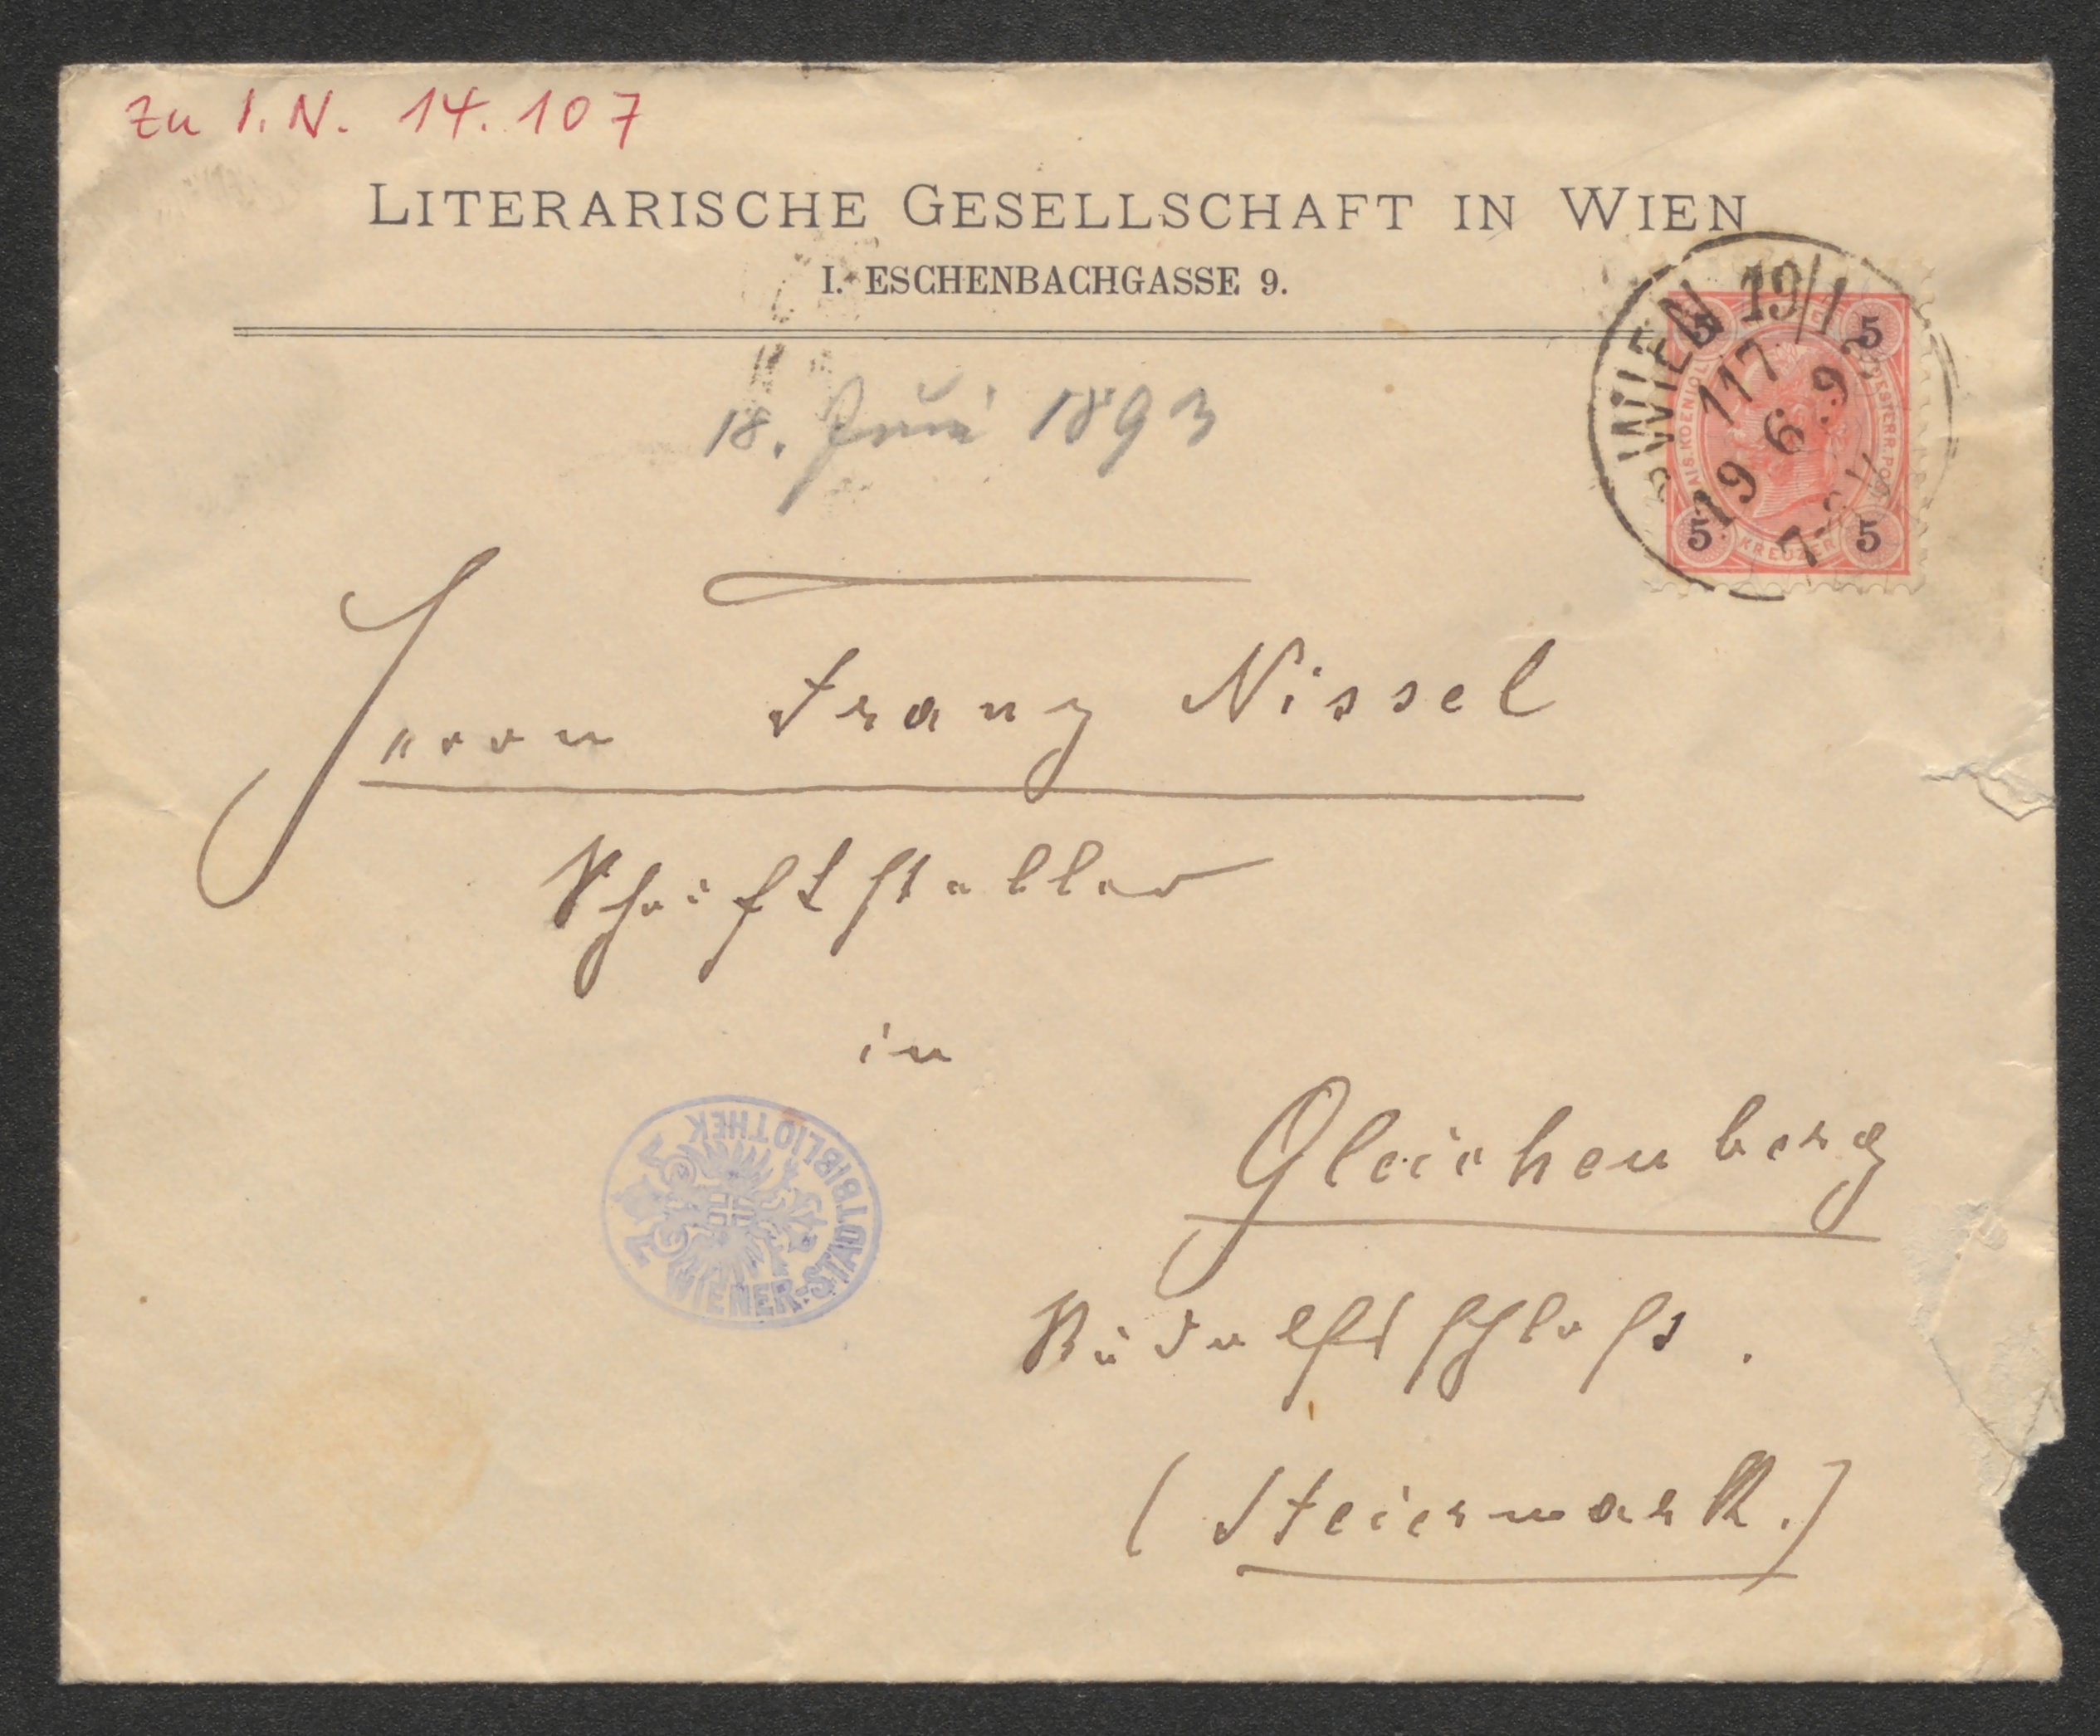 zu I. N. 14.107
LITERARISCHE GESELLSCHAFT IN WIEN
I. ESCHENBACHGASSE 9.
WIEN 19/1
117
19 6 9
5 5 5
KREUZER
18. Juni 1893
Herrn Franz Nissel
Schriftsteller
in
WIENER-STADTBIBLIOTHEK
Gleichenberg
Rudolfsschloss.
(Steiermark.)